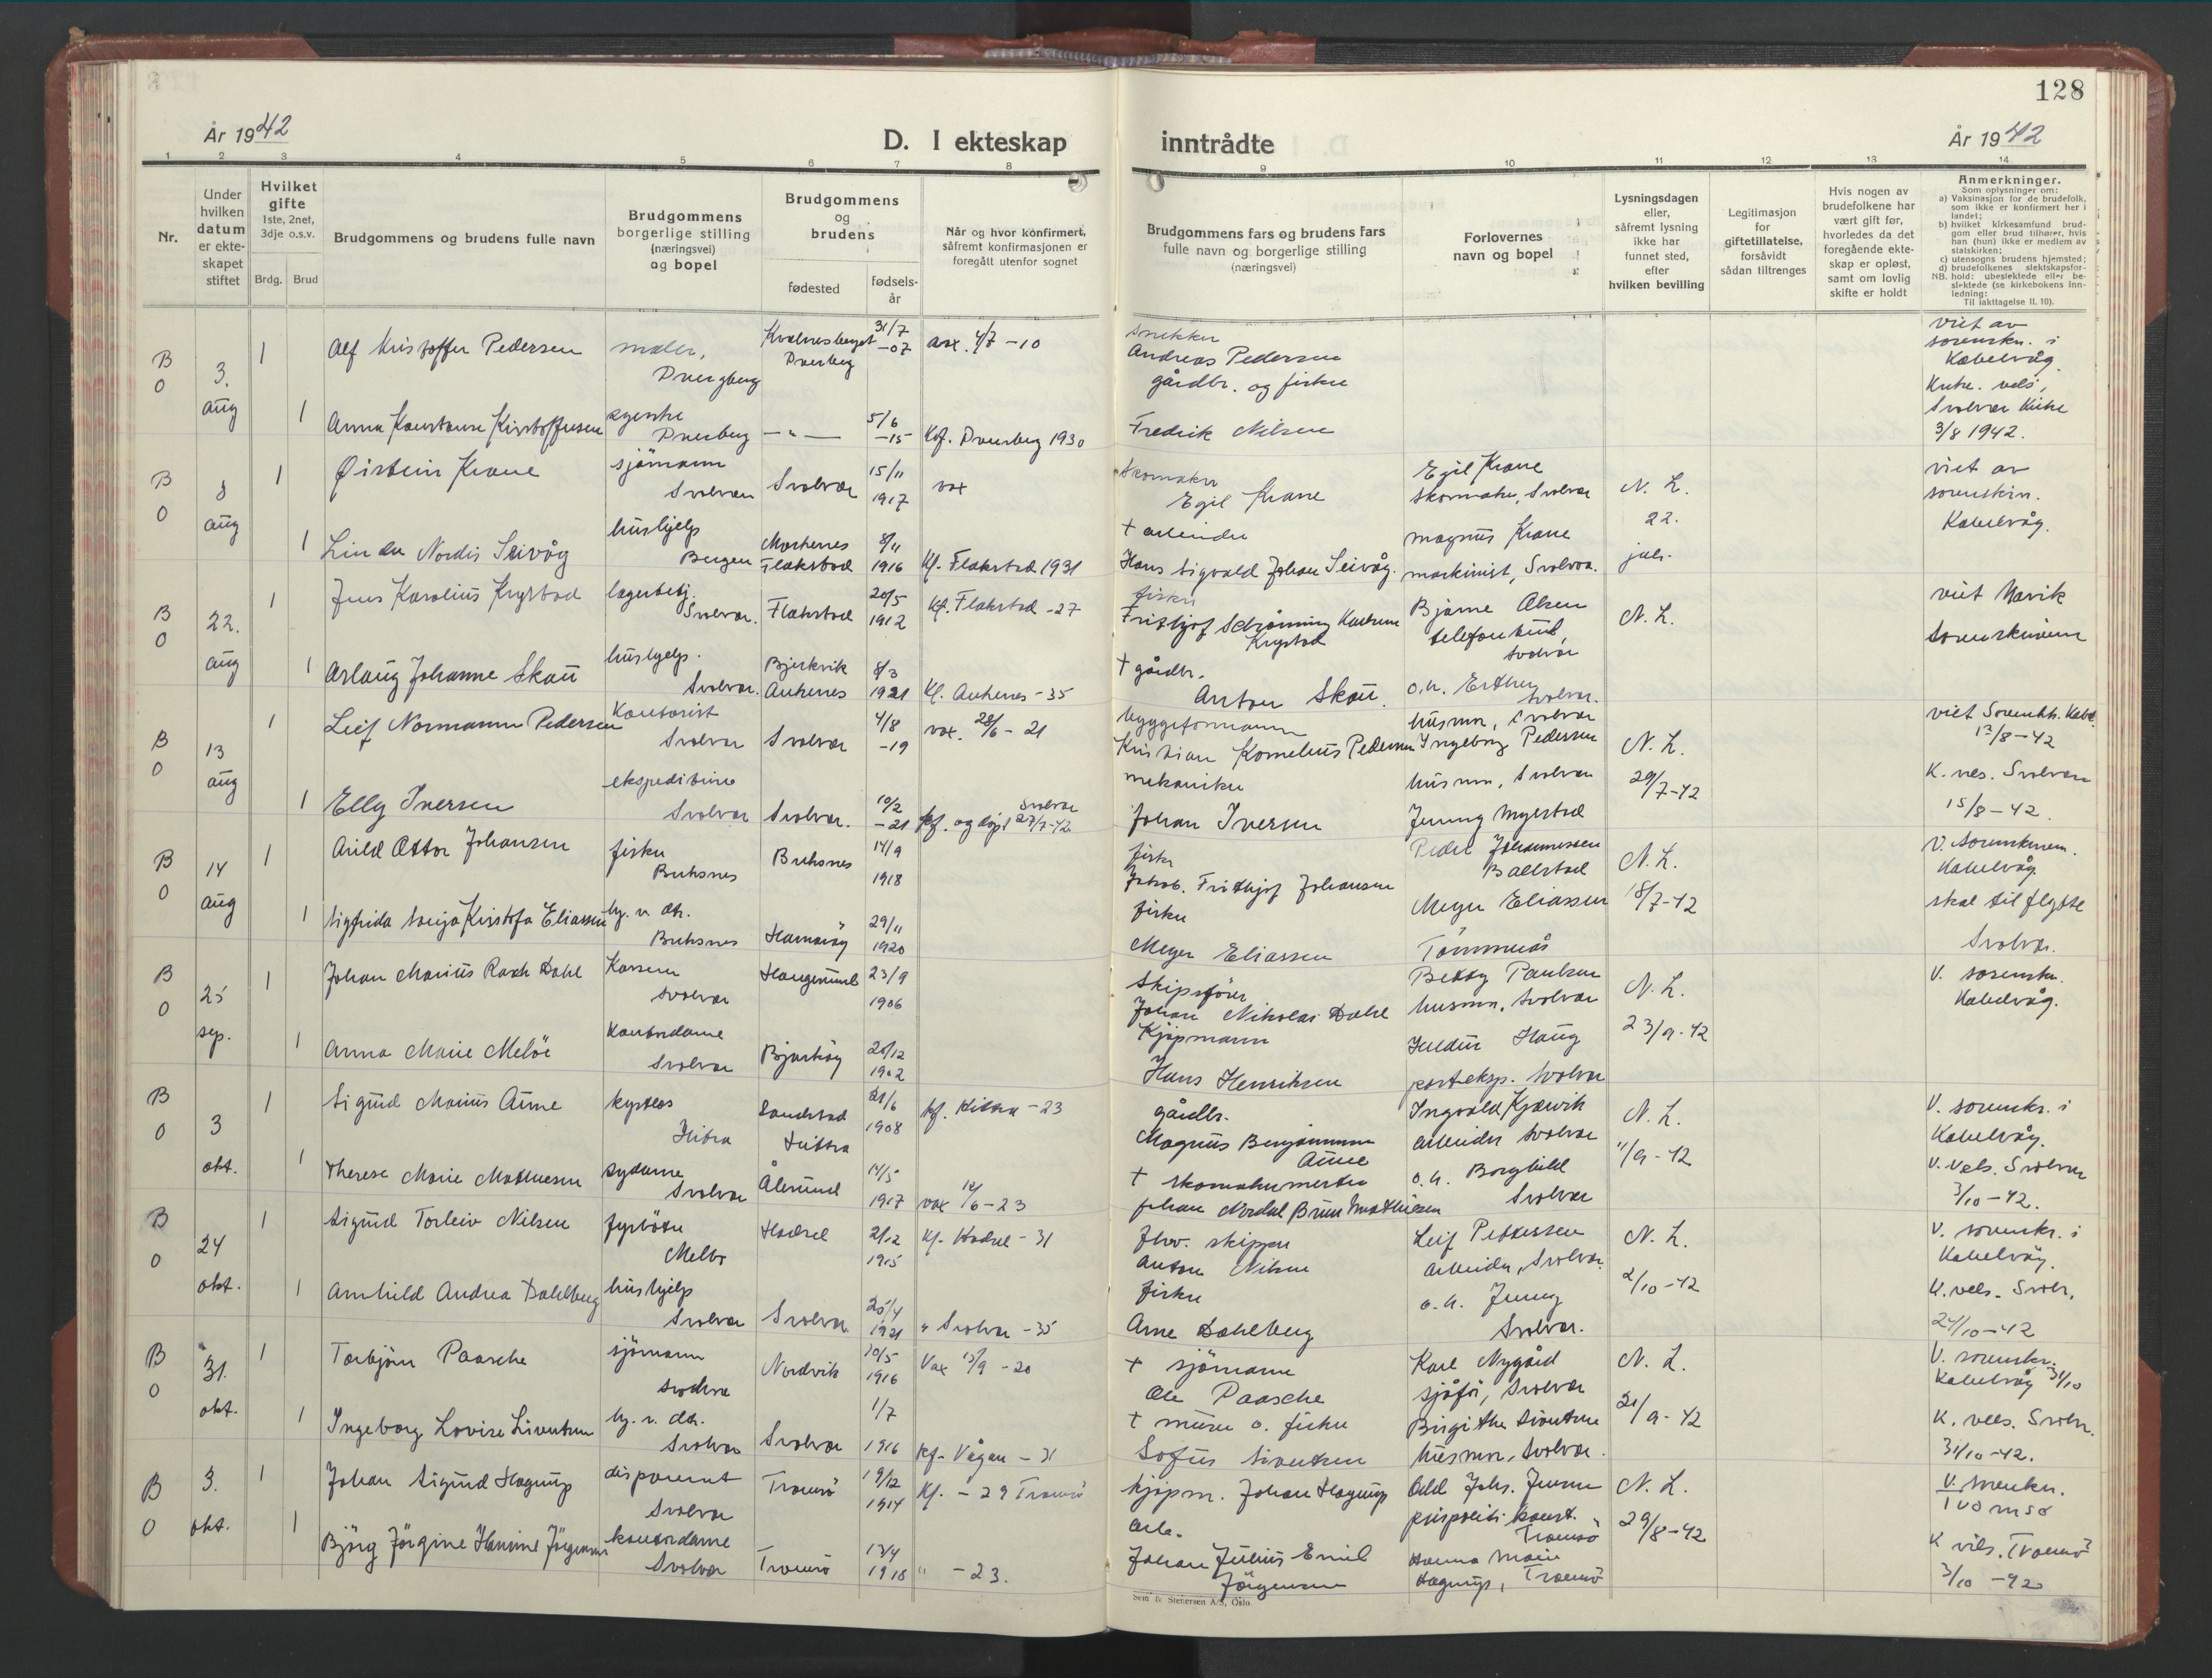 128
År 1942
D. I ekteskap
inntrådte
År 1942
1 2 3 4 5 6 7 8 9 10 11 12 13 14
Nr.
Under hvilken datum er ekte-skapet stiftet
Hvilket gifte
1ste, 2net, 3dje o.s.v.
Brdg. Brud
Brudgommens og brudens fulle navn
Brudgommens borgerlige stilling (næringsvei) og bopel
Brudgommens og brudens
fødested
fødsels-år
Når og hvor konfirmert, såfremt konfirmasjonen er foregått utenfor sognet
Brudgommens fars og brudens fars fulle navn og borgerlige stilling (næringsvei)
Forlovernes navn og bopel
Lysningsdagen eller, såfremt lysning ikke har funnet sted, efter hvilken bevilling
Legitimasjon for giftetillatelse, forsåvidt sådan tiltrenges
Hvis nogen av brudefolkene har vært gift før, hvorledes da det foregående ekte-skap er opløst, samt om lovlig skifte er holdt
Anmerkninger.
Som oplysninger om:
a) Vaksinasjon for de brudefolk, som ikke er konfirmert her i landet;
b) hvilket kirkesamfund brud-gom eller brud tilhører, hvis han (hun) ikke er medlem av statskirken;
c) utensogns brudens hjemsted;
d) brudefolkenes slektskapsfor-hold: ubeslektede eller be-slektede (se kirkebokens inn-ledning:
NB. Til iakttagelse II. 10).
B 3. 1 Alf Kristoffer Pedersen maler, Dvergberg 31/7 -07 4/7 -10
snekker Andreas Pedersen
gårdbr. og fisker
viet av sorenskr. i Kabelvåg.
O aug 1 Anna Konstanse Kristoffersen Dverberg -"- 5/6 -15 Kf. Dverberg 1930
Fredrik Nilsen
Svolvær Kirke 3/8 1942.
B 8 1 Øistein Krane sjömann Svolvær Svolvær 15/11 1917 vax
skomaker Egil Krane
Egil Krane skomaker, Svolvær N. L.
viet av sorenskrn. Kabelvåg.
O aug 1 Nordis Seivåg hushjelp Bergen Flakstad 8/11 1916 Kf. Flakstad 1931
+ arbeider Hans Sigvald Johan Seivåg.
Magnus Krane maskinist, Svolvær. 22. juli
B 22. 1 Jens Karolius Krystad lagerbetj. Svolvær. Flakstad 20/5 1912 Kf. Flakstad -27
fisker Krystad
Bjarne Olsen Svolvær N. L.
viet Narvik Sorenskriveren
O aug 1 Aslaug Johanne Skau hushjelp. Svolvær. Bjerkvik Ankenes 8/3 1921 Kf. Ankenes -35
+ gårdbr. Anton Skau.
o.h. Esther Svolvær.
B 13 1 Leif Normann Pedersen Kontorist Svolvær Svolvær 4/8 -19 vax. 28/6 - 21
byggeformann Kristian Kornelius Pedersen
husmor, Svolvær Ingeborg Pedersen N. L.
viet Sorenskr. Kabv. 13/8-42
O aug 1 Elly Iversen ekspeditrise Svolvær Svolvær. 10/2 -21 kf. og døpt Svolvær 27/7-42
mekaniker Johan Iversen
husmor, Svolvær Jenny Myrstad 29/7-42
K. vels. Svolvær 15/8-42.
B 14 1 Arild Ottar Johansen fisker Buksnes Buksnes 14/9 1918
fisker Jakob. Frithjof Johansen
Peder Johannessen Ballstad N. L.
V. Sorenskriveren. Kabelvåg.
O aug 1 Sigfrida Sonja Kristofa Eliassen hj. v. dtr. Buksnes Hamarøy 29/11 1920
fisker Meyer Eliassen
Meyer Eliassen 18/7-42
skal tilflytte Svolvær.
B 25 1 Johan Marius Rask Dahl Svolvær Haugesund 23/9 1906
Skipsfører Johan Nikolai Dahl
Betty Paulsen husmor, Svolvær N. L.
V. sorenskr. Kabelvåg.
O sep. 1 Anna Marie Meløe Kontordame Svolvær Bjarkøy 20/12 1902
Kjøpmann Hans Henriksen
Haug posteksp. Svolvær 23/9-42
B 3 1 Sigurd Marius Aune Hitra Sandstad Hitra 21/6 1908 kf. Hitra -23
gårdbr. Magnus Benjaminsen Aune
Ingvald Kjærvik arbeider Svolvær N. L.
V. sorenskr. i Kabelvåg.
O okt. 1 Therese Marie Mathiesen sydame Svolvær Ålesund 14/5 1917 vax 12/6-23
+ skomakermester Johan Nordal Brun Mathiesen
o.h. Borghild Svolvær 11/9-42
V. vels. Svolvær 3/10-42.
B 24 1 Sigurd Torleiv Nilsen fyrbøter Melbo Hadsel 21/12 1915 Kf. Hadsel -31
Fhv. skipper Anton Nilsen
Leif Pettersen arbeider, Svolvær. N. L.
V. sorenskr. i Kabelvåg.
O okt. 1 Arnhild Andrea Dahlberg hushjelp Svolvær Svolvær 25/4 1921 " Svolvær -35
fisker Arne Dahlberg
o.h. Jenny Svolvær. 2/10-42
K. vels. Svolv. 24/10-42
B 31. 1 Torbjörn Paasche sjömann Svolvær Nordvik 10/5 1916 Vax 13/9 -20
+ sjömann Ole Paasche
Karl Nygård sjåfør, Svolvær N. L.
V. sorenskr. Kabelvåg 31/10
O okt. 1 Ingeborg Lovise Sivertsen hj. v. dtr. Svolvær Svolvær 1/7 1916 kf. Vågan - 31
+ murer o. fisker Sofus Sivertsen
Birgithe Sivertsen husmor, Svolvær. 21/9-42
K. vels. Svolv. 31/10-42.
B 3. 1 Johan Sigurd Hagerup disponent Svolvær Tromsö 19/12 1914 Kf. - 29 Tromsö
kjøpm. Johan Hagerup
Odd Johs. Jensen Tromsö N. L.
V. sorenskr. Tromsö
O okt. 1 Bjørg Jörgine Hansine Jörgensen kontordame Svolvær Tromsö 13/4 1918 " -23.
arb. Johan Julius Emil Jörgensen
Hanna Marie Hagerup, Tromsö 29/8-42
K vels. Tromsö 3/10 -42
Sem & Stenersen A/S, Oslo.